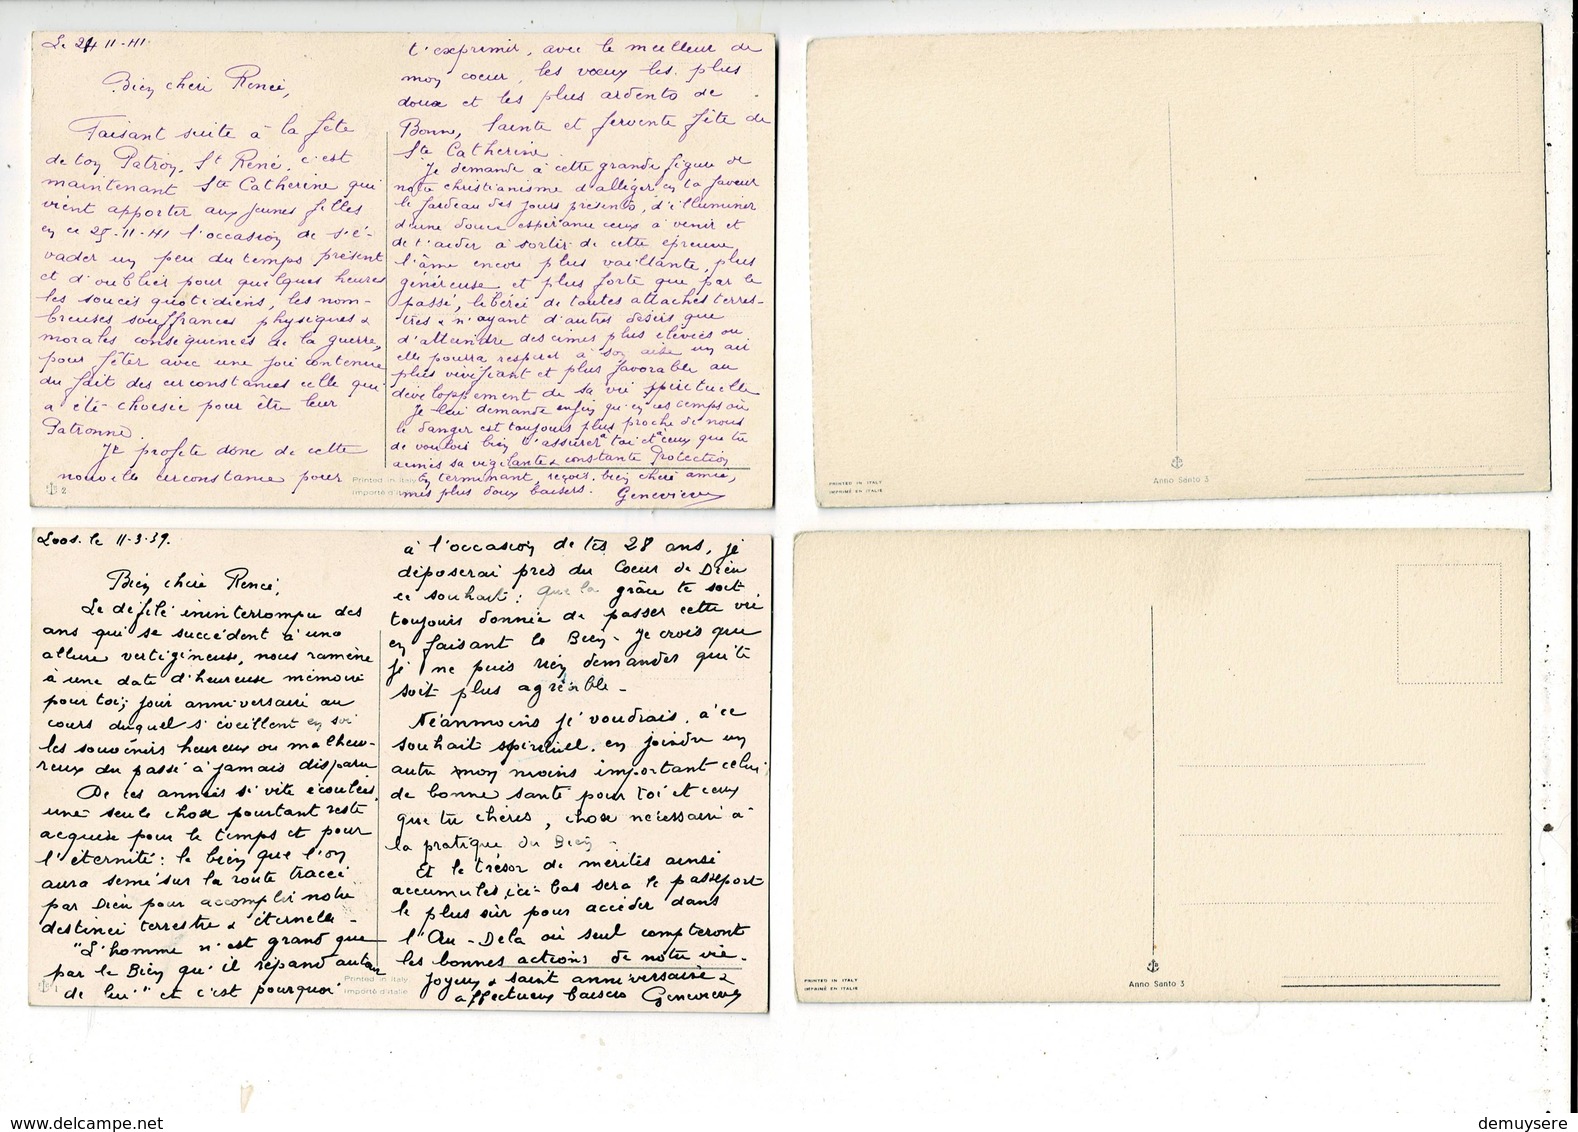 Le 24-11-41.
Bien chère Renée,
Faisant suite à la fête
de ton Patron, St René, c'est
maintenant Ste Catherine qui
vient apporter aux jeunes filles
en ce 25-11-41 l'occasion de s'é-
vader un peu du temps présent
et d'oublier pour quelques heures
les soucis quotidiens, les nom-
breuses souffrances physiques &
morales conséquences de la guerre,
pour fêter avec une joie contenue
du fait des circonstances celle qui
a été choisie pour être leur
Patronne.
Je profite donc de cette
nouvelle circonstance pour
t'exprimer, avec le meilleur de
mon coeur, les voeux les plus
doux et les plus ardents de
Bonne, Sainte et fervente fête de
Ste Catherine.
Je demande à cette grande figure de
notre christianisme d'alléger en ta faveur
le fardeau des jours présents, d'illuminer
d'une douce espérance ceux à venir et
de t'aider à sortir de cette épreuve
l'âme encore plus vaillante, plus
généreuse et plus forte que par le
passé, libérée de toutes attaches terres-
tres & n'ayant d'autres désirs que
d'atteindre des cimes plus élevées où
elle pourra respirer à son aise un air
plus vivifiant et plus favorable au
développement de sa vie spirituelle
Je lui demande enfin qu'en ces temps où
le danger est toujours plus proche de nous
de vouloir bien t'assurer à toi et à ceux que tu
aimes sa vigilante & constante Protection
En terminant, reçois, bien chère amie,
mes plus doux baisers. Geneviève
2
Printed in Italy
Importé d'Italie
PRINTED IN ITALY
IMPRIMÉ EN ITALIE
Anno Santo 3
Loos. le 11-3-39.
Bien chère Renée,
Le défilé ininterrompu des
ans qui se succèdent à une
allure vertigineuse, nous ramène
à une date d'heureuse mémoire
pour toi; jour anniversaire au
cours duquel s'éveillent en soi
les souvenirs heureux ou malheu-
reux du passé à jamais disparu
De ces années si vite écoulées,
une seule chose pourtant reste
acquise pour le temps et pour
l'éternité: le bien que l'on
aura semé sur la route tracée
par Dieu pour accomplir notre
destinée terrestre & éternelle -
"L'homme n'est grand que
par le Bien qu'il répand autour
de lui" et c'est pourquoi
à l'occasion de tes 28 ans, je
déposerai près du Coeur de Dieu
ce souhait: que la grâce te soit
toujours donnée de passer cette vie
en faisant le Bien - Je crois que
je ne puis rien demander qui te
soit plus agréable -
Néanmoins je voudrais, à ce
souhait spirituel, en joindre un
autre non moins important celui
de bonne santé pour toi et ceux
que tu chéris, chose nécessaire à
la pratique du Bien -
Et le trésor de mérites ainsi
accumulés ici-bas sera le passeport
le plus sûr pour accéder dans
l'Au-Delà où seul compteront
les bonnes actions de notre vie.
Joyeux & saint anniversaire &
affectueux baisers Geneviève
1
Printed in Italy
Importé d'Italie
PRINTED IN ITALY
IMPRIMÉ EN ITALIE
Anno Santo 3
demuysere